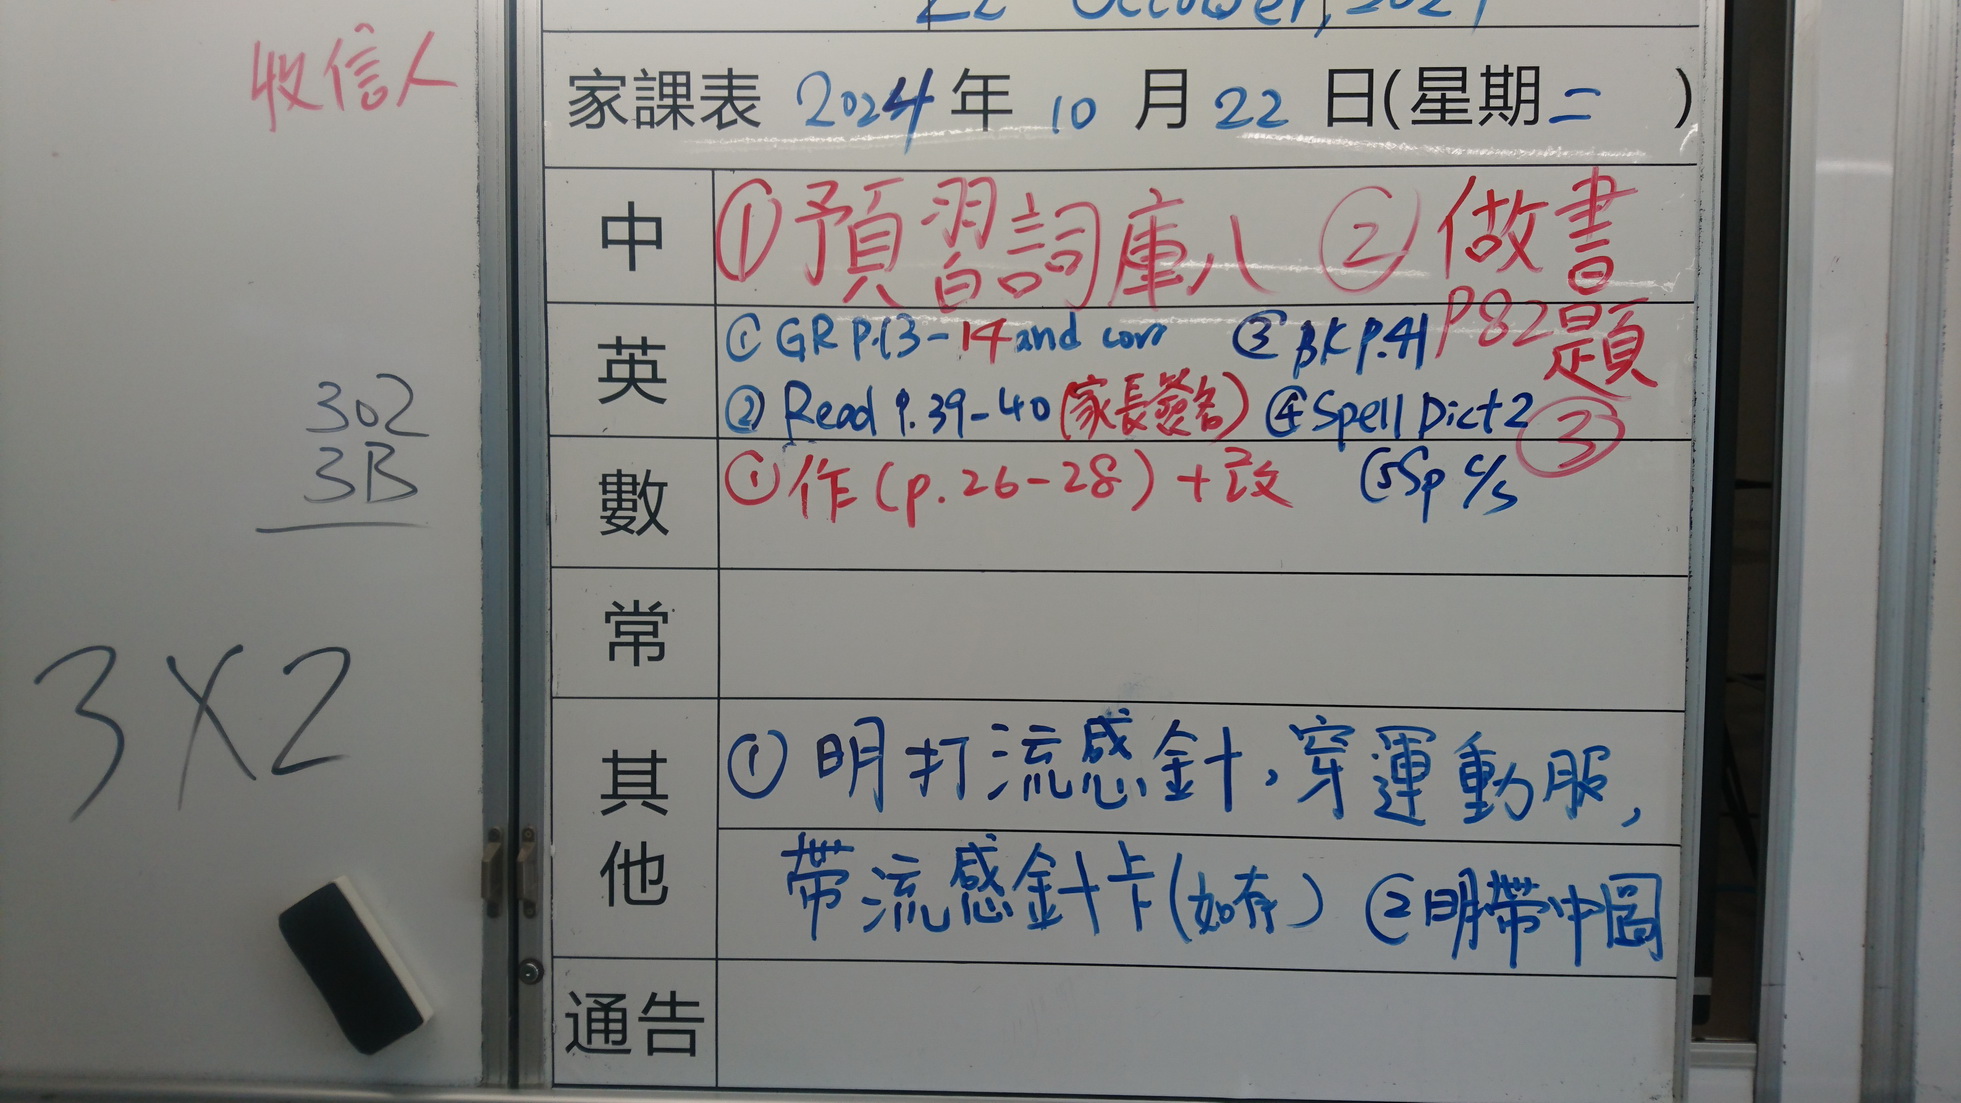 收信人
302
3B
3X2
22 October, 2024
家課表 2024 年 10 月 22 日(星期二 )
中 ①預習詞庫八 ②做書
P82題③
英 ①GR P.13-14 and corr ③BK P.41
②Read P.39-40(家長簽名) ④Spell Dict 2
⑤Sp c/s
數 ①作(p.26-28)+改
常
其他 ①明打流感針,穿運動服,
帶流感針卡(如有) ②明帶中圖
通告